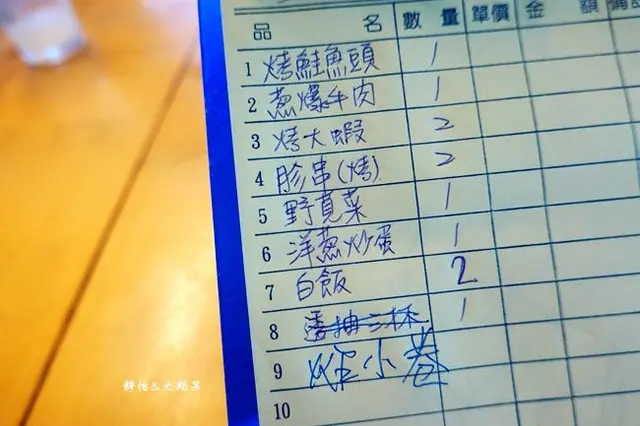 品 名 數 量 單價 金 額 備註
1 烤鮭魚頭 1
2 蔥爆牛肉 1
3 烤大蝦 2
4 胗串(烤) 2
5 野莧菜 1
6 洋蔥炒蛋 1
7 白飯 2
8 透抽三杯 1
9 小卷
10